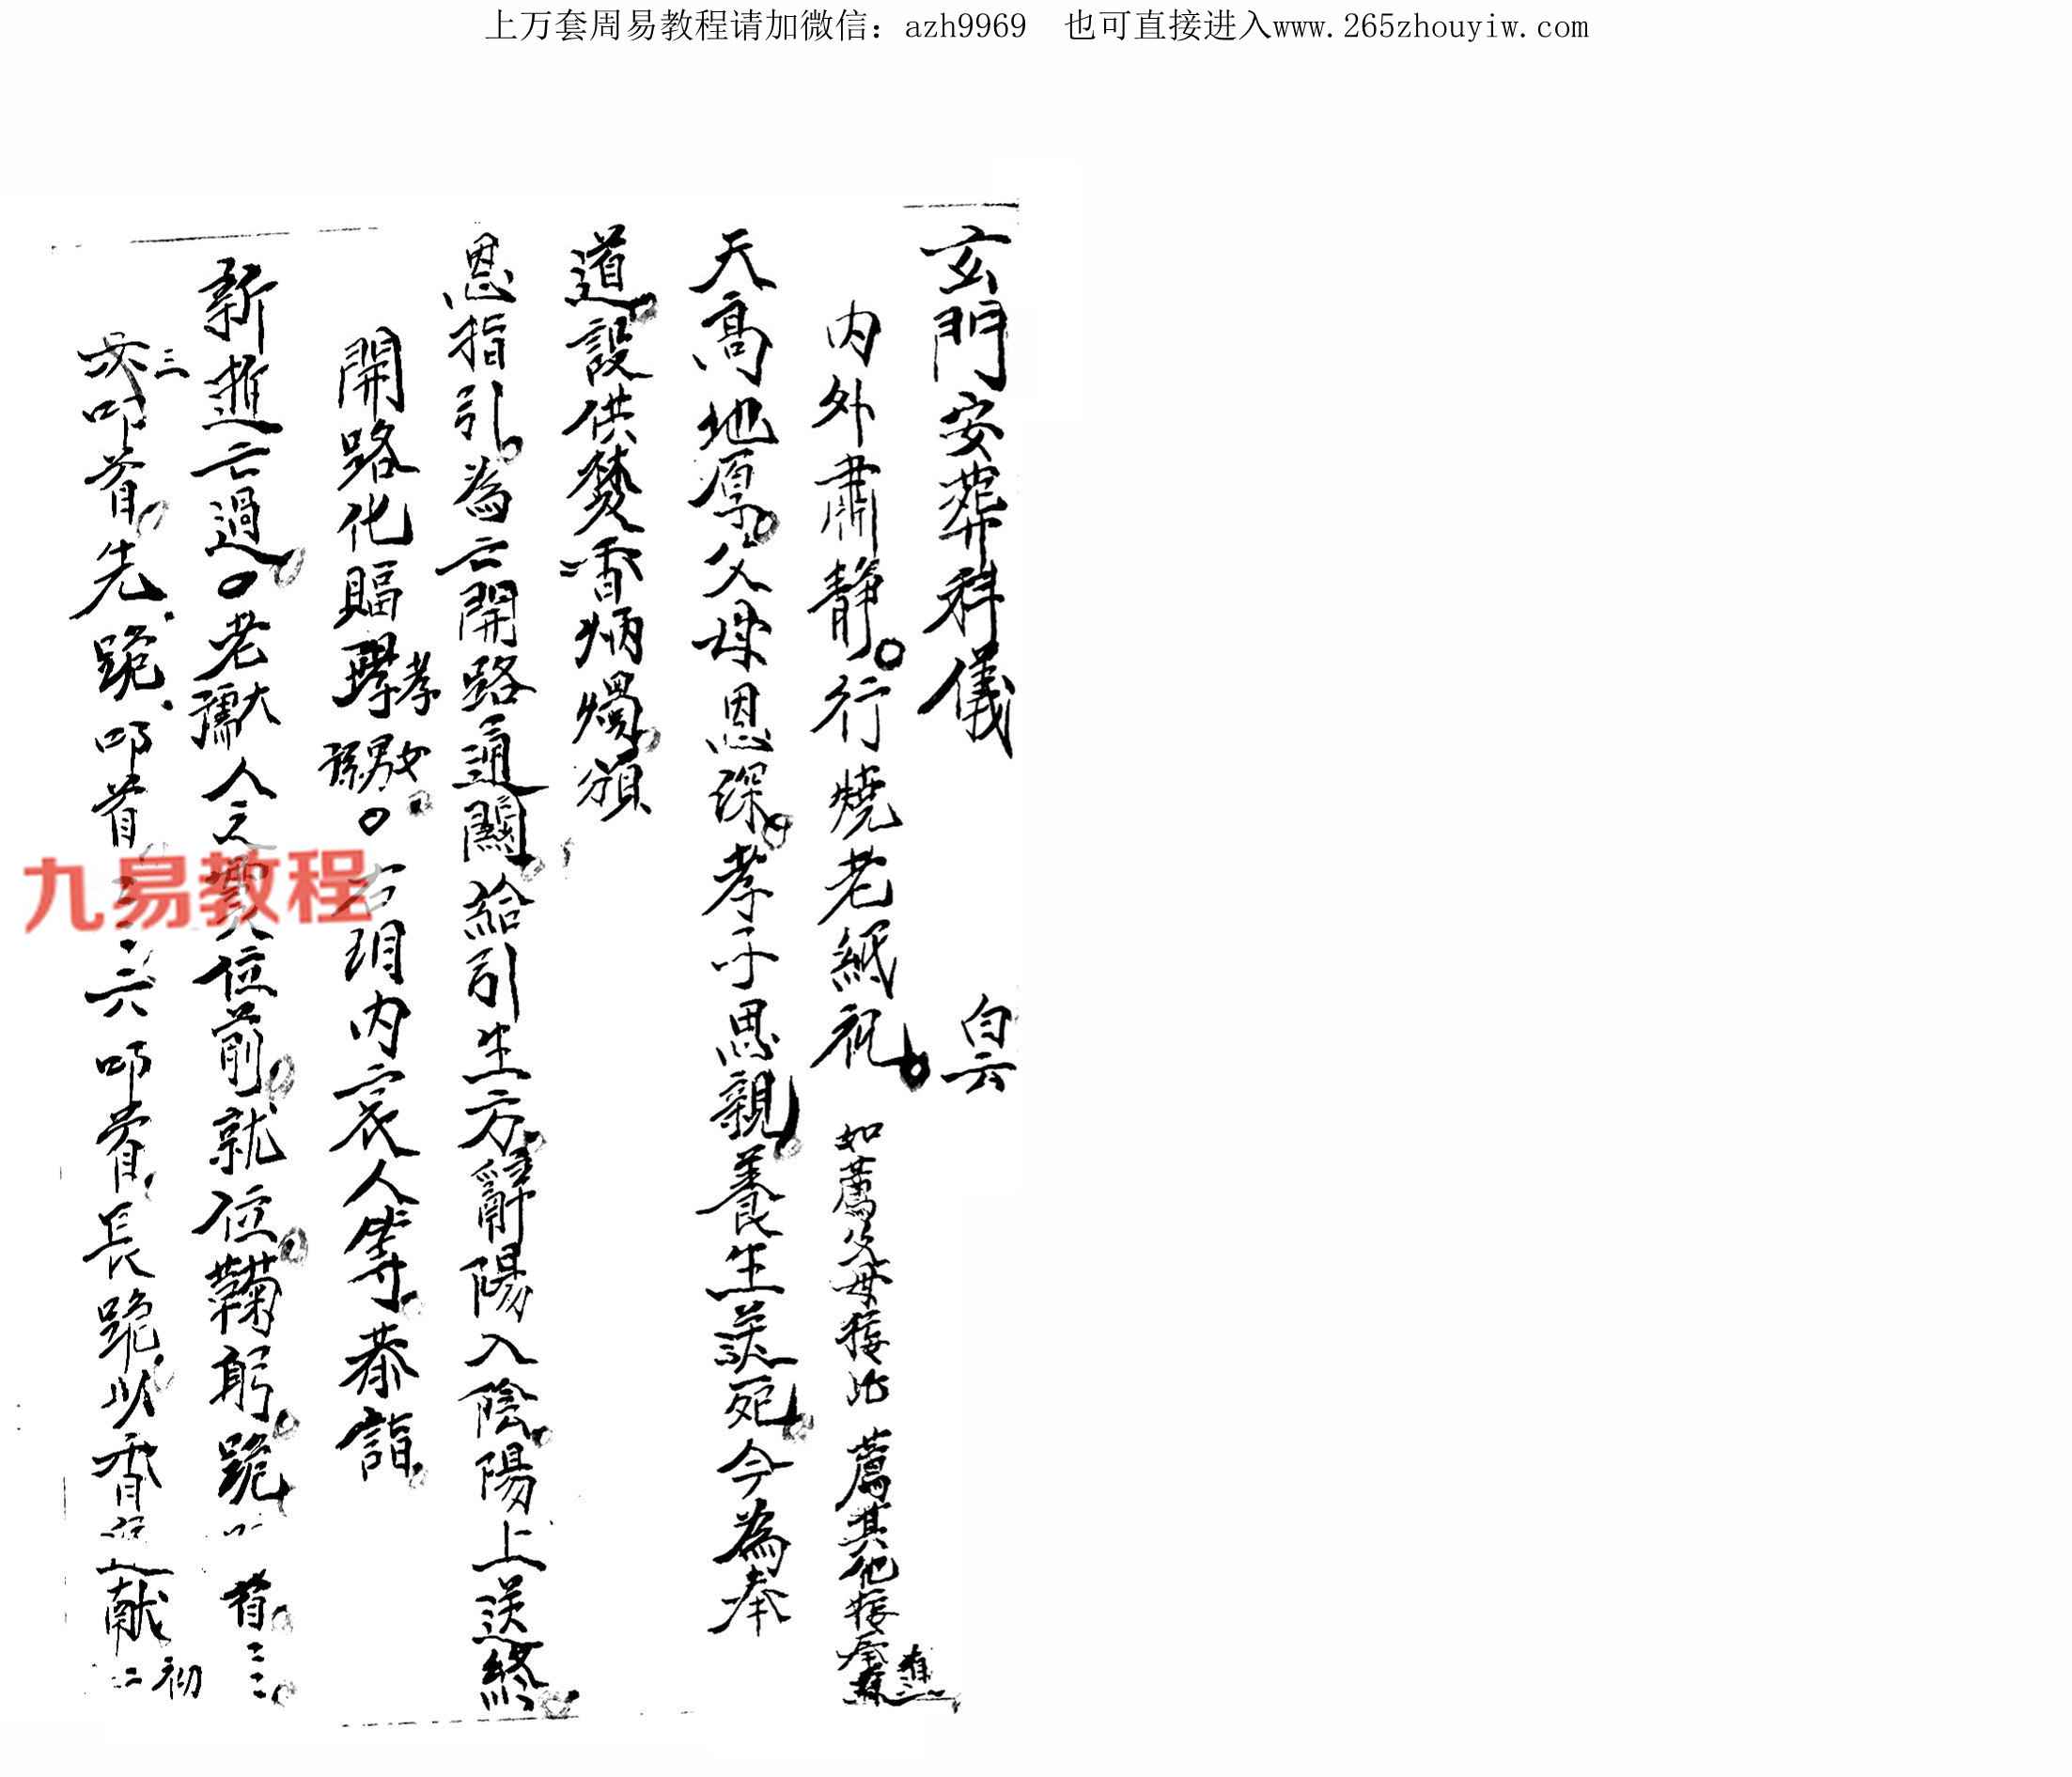 上万套周易教程请加微信：azh9969　也可直接进入www.265zhouyiw.com
玄門安葬科儀　白云
内外肅静。行燒老紙祝。如薦父母接此　薦其他接
天高地厚。父母恩深。孝子思親。養生送死。今為奉
道。設供焚香炳燭。頒
恩指引。為亡開路通關。給引生方。辭陽入陰。陽上送終。
開路化賻　孝　男女。　右　内哀人等。恭詣。
新逝亡過。老　大人之　位前。就位。鞠躬。跪　首。三二。
三
次叩首。先跪叩首　六叩首。長跪。以香　献　初二
九易教程